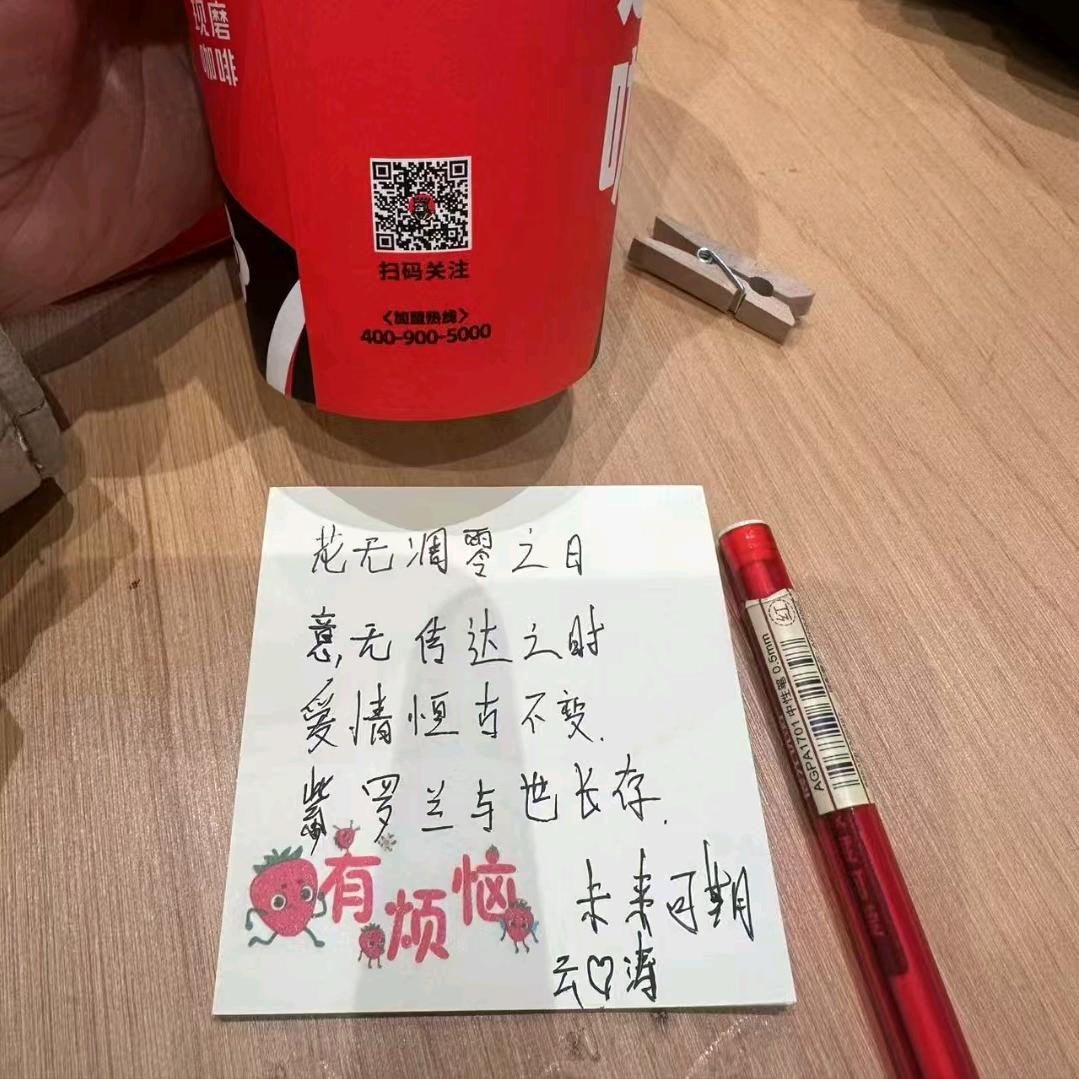 现磨
咖啡
扫码关注
<加盟热线>
400-900-5000
花无凋零之日
意无传达之时
爱情恒古不变.
紫罗兰与世长存.
有烦恼
未来可期
云♡涛
红
AGPA1701 中性笔 0.5mm